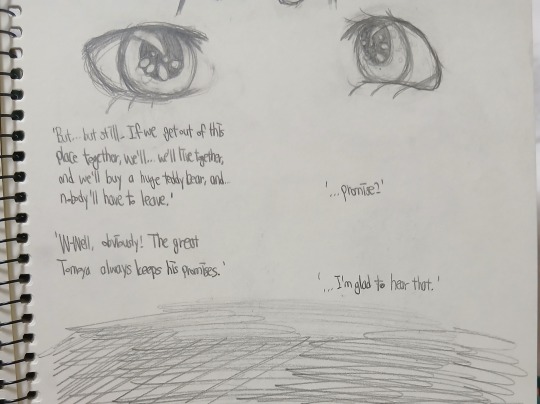 'But... but still... If we get out of this
place together, we'll... we'll live together,
and we'll buy a huge teddy bear, and...
nobody'll have to leave.'
'...promise?'
'W-Well, obviously! The great
Tomoya always keeps his promises.'
'...I'm glad to hear that.'